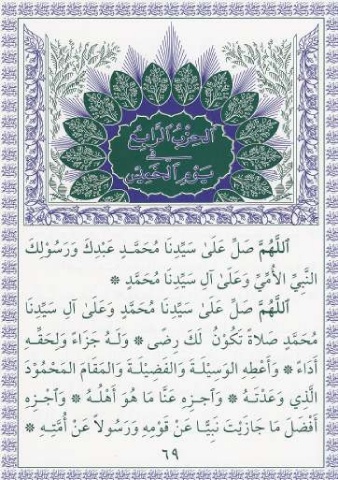 الحزب الرابع
في
يوم الخميس
اَللَّهُمَّ صَلِّ عَلَىٰ سَيِّدِنَا مُحَمَّدٍ عَبْدِكَ وَرَسُولِكَ
النَّبِيِّ الأُمِّيِّ وَعَلَىٰ آلِ سَيِّدِنَا مُحَمَّدٍ ❁
اَللَّهُمَّ صَلِّ عَلَىٰ سَيِّدِنَا مُحَمَّدٍ وَعَلَىٰ آلِ سَيِّدِنَا
مُحَمَّدٍ صَلاَةً تَكُونُ لَكَ رِضىً ❁ وَلَهُ جَزَاءً وَلِحَقِّهِ
أَدَاءً ❁ وَأَعْطِهِ الْوَسِيلَةَ وَالْفَضِيلَةَ وَالْمَقَامَ الْمَحْمُودَ
الَّذِي وَعَدْتَهُ ❁ وَاَجْزِهِ عَنَّا مَا هُوَ أَهْلُهُ ❁ وَاَجْزِهِ
أَفْضَلَ مَا جَازَيْتَ نَبِيًّا عَنْ قَوْمِهِ وَرَسُولاً عَنْ أُمَّتِهِ ❁
٦٩